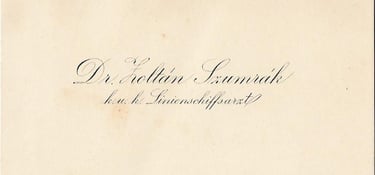 Dr. Zoltán Szumrák
k. u. k. Linienschiffsarzt